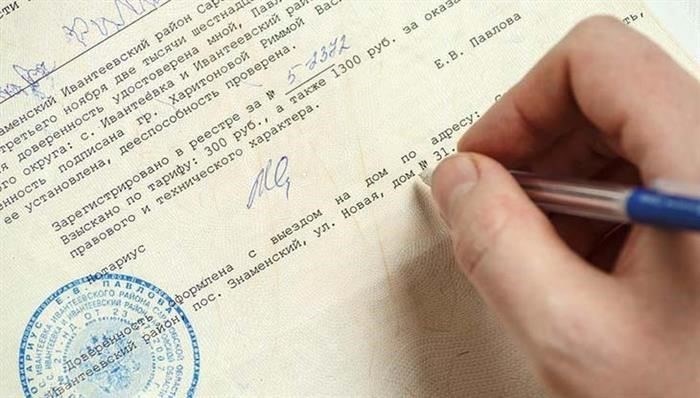 сти
Знаменский Ивантеевский район Сар
третьего ноября две тысячи шестнадца
я доверенность удостоверена мной, Павл
ого округа: с. Ивантеевка и Ивантеевский рай
нность подписана гр. Харитоновой Риммой Вас
ее установлена, дееспособность проверена.
Зарегистрировано в реестре за № 5-2372
Взыскано по тарифу: 300 руб., а также 1300 руб. за оказа
правового и технического характера.
Нотариус Е.В. Павлова
Доверенность оформлена с выездом на дом по адресу: С
Ивантеевский район, пос. Знаменский, ул. Новая, дом № 31.
НОТАРИУС Е. В. ПАВЛОВА
ИВАНТЕЕВСКОГО РАЙОНА